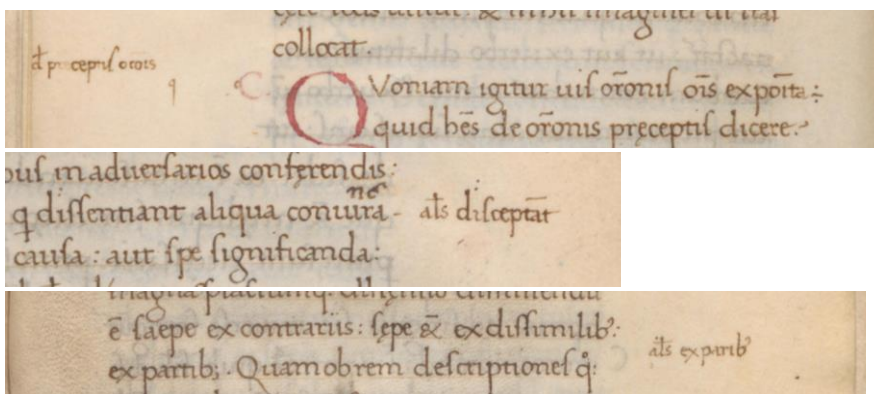 collocat.
d̄ preceptis orōis
QVoniam igitur uis orōnis oīs expoīta:
quid hēs de orōnis preceptis dicere:
bus in aduersarios conferendis:
dissentiant aliqua
alˀs disceptāt
causa: aut spe significanda:
ē saepe ex contrariis: sępe & ex dissimilibꝰ:
ex partib;. Quamobrem descriptiones
alˀs ex paribꝰ